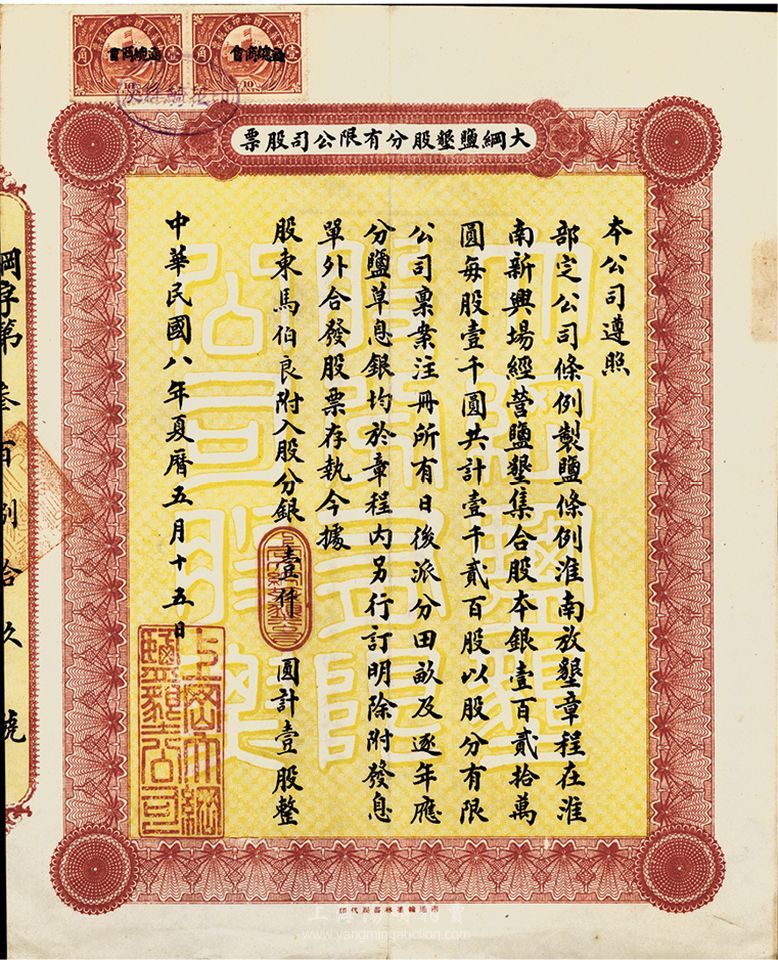 大綱鹽墾股分有限公司股票
本公司遵照
部定公司條例製鹽條例淮南放墾章程在淮
南新興場經營鹽墾集合股本銀壹百貳拾萬
圓每股壹千圓共計壹千貳百股以股分有限
公司稟案注冊所有日後派分田畝及逐年應
分鹽草息銀均於章程内另行訂明除附發息
單外合發股票存執今據
股東馬伯良附入股分銀壹仟圓計壹股整
中華民國八年夏曆五月十五日
上岡大綱
鹽墾公司
綱字第叁百捌拾玖號
www.yangmingauction.com